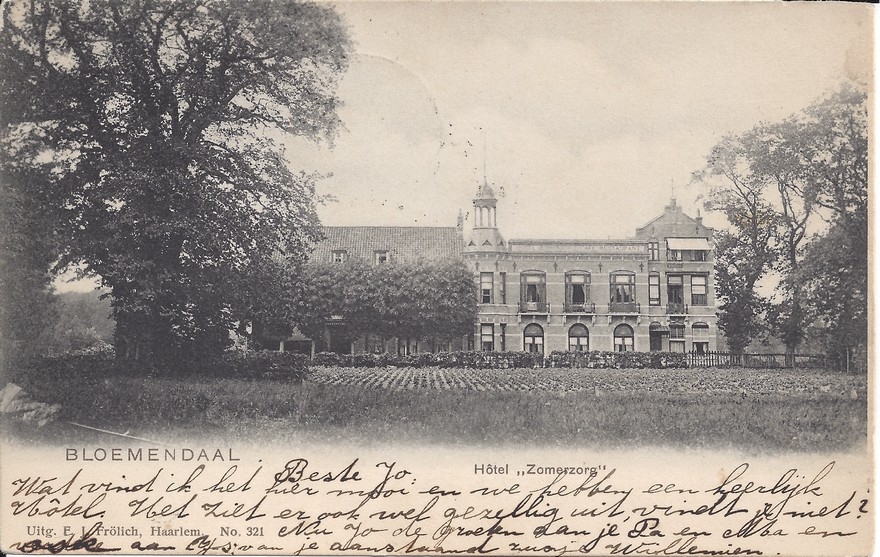 BLOEMENDAAL
Hôtel „Zomerzorg"
Beste Jo.
Wat vind ik het hier mooi en we hebben een heerlijk
Hôtel. Het ziet er ook wel gezellig uit, vindt je niet?
Uitg. E. J. Frölich, Haarlem. No. 321
Nu Jo de groeten aan je Pa en Ma en
aan van je aanstaand Willemien.